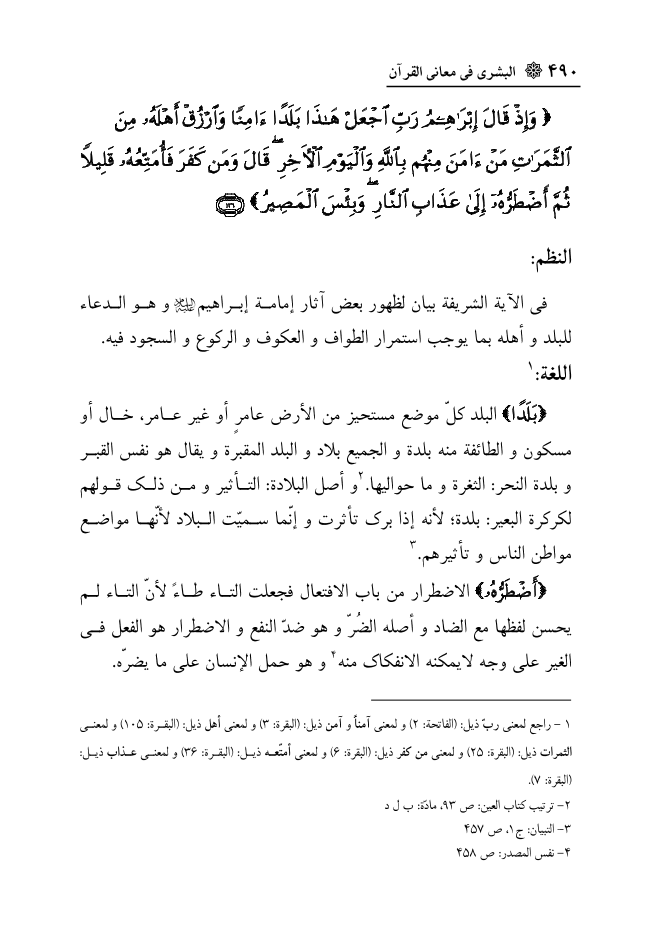 ٤٩٠ البشرى في معاني القرآن
﴿ وَإِذْ قَالَ إِبْرَاهِـۧمُ رَبِّ ٱجْعَلْ هَـٰذَا بَلَدًا ءَامِنًا وَٱرْزُقْ أَهْلَهُۥ مِنَ
ٱلثَّمَرَٰتِ مَنْ ءَامَنَ مِنْهُم بِٱللَّهِ وَٱلْيَوْمِ ٱلْـَٔاخِرِ ۖ قَالَ وَمَن كَفَرَ فَأُمَتِّعُهُۥ قَلِيلًا
ثُمَّ أَضْطَرُّهُۥٓ إِلَىٰ عَذَابِ ٱلنَّارِ ۖ وَبِئْسَ ٱلْمَصِيرُ﴾ ١٢٦
النظم:
فى الآية الشريفة بيان لظهور بعض آثار إمامـة إبـراهيم عليه السلام و هـو الـدعاء
للبلد و أهله بما يوجب استمرار الطواف و العكوف و الركوع و السجود فيه.
اللغة:١
﴿بَلَدًا﴾ البلد كلّ موضع مستحيز من الأرض عامرٍ أو غير عـامر، خـال أو
مسكون و الطائفة منه بلدة و الجميع بلاد و البلد المقبرة و يقال هو نفس القبـر
و بلدة النحر: الثغرة و ما حواليها.٢و أصل البلادة: التـأثير و مـن ذلـک قـولهم
لكركرة البعير: بلدة؛ لأنه إذا برک تأثرت و إنّما سمـيّت الـبلاد لأنّهـا مواضـع
مواطن الناس و تأثيرهم.٣
﴿أَضْطَرُّهُۥ﴾ الاضطرار من باب الافتعال فجعلت التـاء طـاءً لأنّ التـاء لـم
يحسن لفظها مع الضاد و أصله الضُرّ و هو ضدّ النفع و الاضطرار هو الفعل فـى
الغير على وجه لايمكنه الانفكاک منه٤ و هو حمل الإنسان على ما يضرّه.
١ - راجع لمعنى ربّ ذيل: (الفاتحة: ٢) و لمعنى آمناً و آمن ذيل: (البقرة: ٣) و لمعنى أهل ذيل: (البقـرة: ١٠٥) و لمعنـى
الثمرات ذيل: (البقرة: ٢٥) و لمعنى من كفر ذيل: (البقرة: ٦) و لمعنى أمتّعـه ذيـل: (البقـرة: ٣٦) و لمعنـى عـذاب ذيـل:
(البقرة: ٧).
٢- ترتيب كتاب العين: ص ٩٣، مادّة: ب ل د
٣- التبيان: ج١، ص ٤٥٧
٤- نفس المصدر: ص ٤٥٨